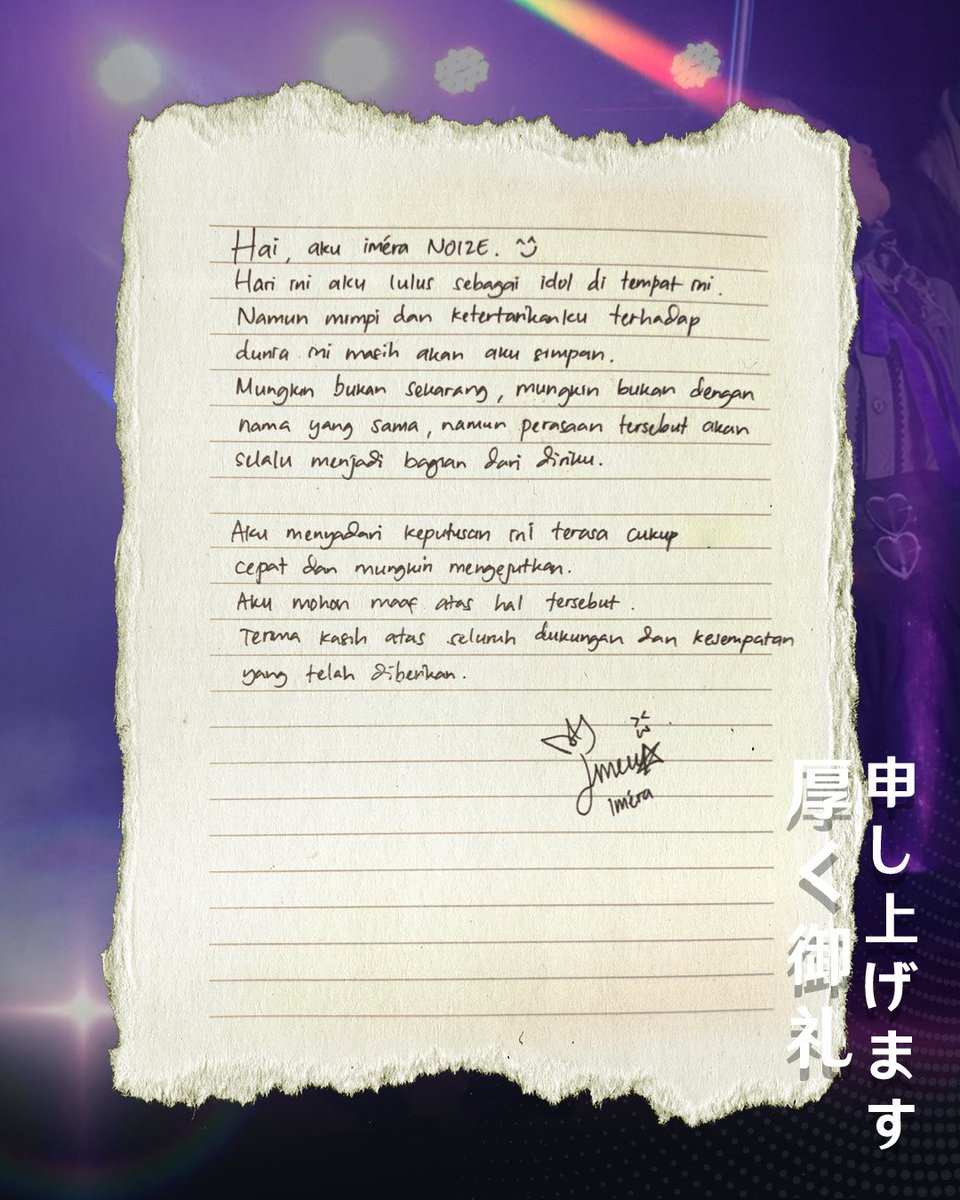 Hai, aku iméra NOIZE. ^^
Hari ini aku lulus sebagai idol di tempat ini.
Namun mimpi dan ketertarikanku terhadap
dunia ini masih akan aku simpan.
Mungkin bukan sekarang, mungkin bukan dengan
nama yang sama, namun perasaan tersebut akan
selalu menjadi bagian dari diriku.
Aku menyadari keputusan ini terasa cukup
cepat dan mungkin mengejutkan.
Aku mohon maaf atas hal tersebut.
Terima kasih atas seluruh dukungan dan kesempatan
yang telah diberikan.
iméra
厚く御礼
申し上げます